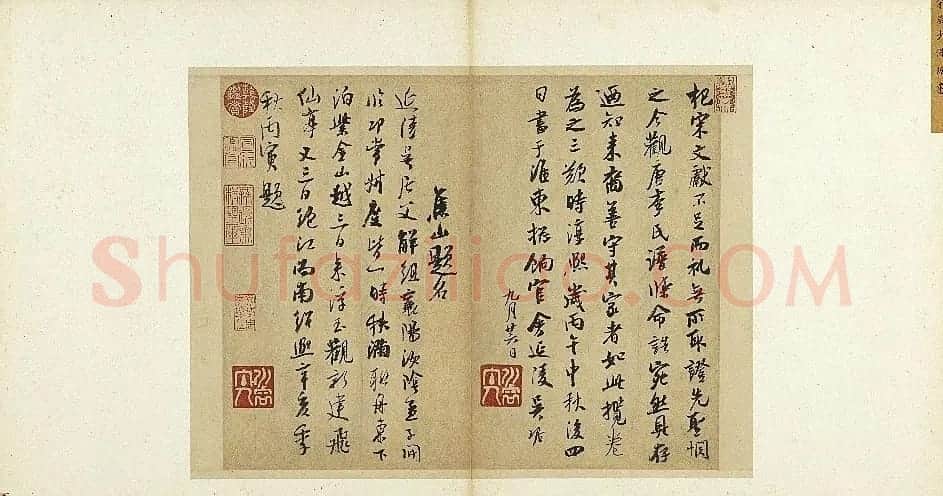 杞宋文獻不足而礼無所取證先聖惘
之今觀唐李氏譜牒命誥宛然具存
迺知来裔善守其家者如此攬卷
為之三歎時淳熙歲丙午中秋後四
日書于淮東揔餉官舍延陵吴琚
九月廿六日
焦山題名
延陵吴居父解組襄陽汝陰孟子開
臨邛常叔度皆一時秩滿聯舟東下
泊紫金山越三日来浮玉觀新建飛
仙亭又三日絶江而南紹熙辛亥季
秋丙寅題
Shufaziliao.COM